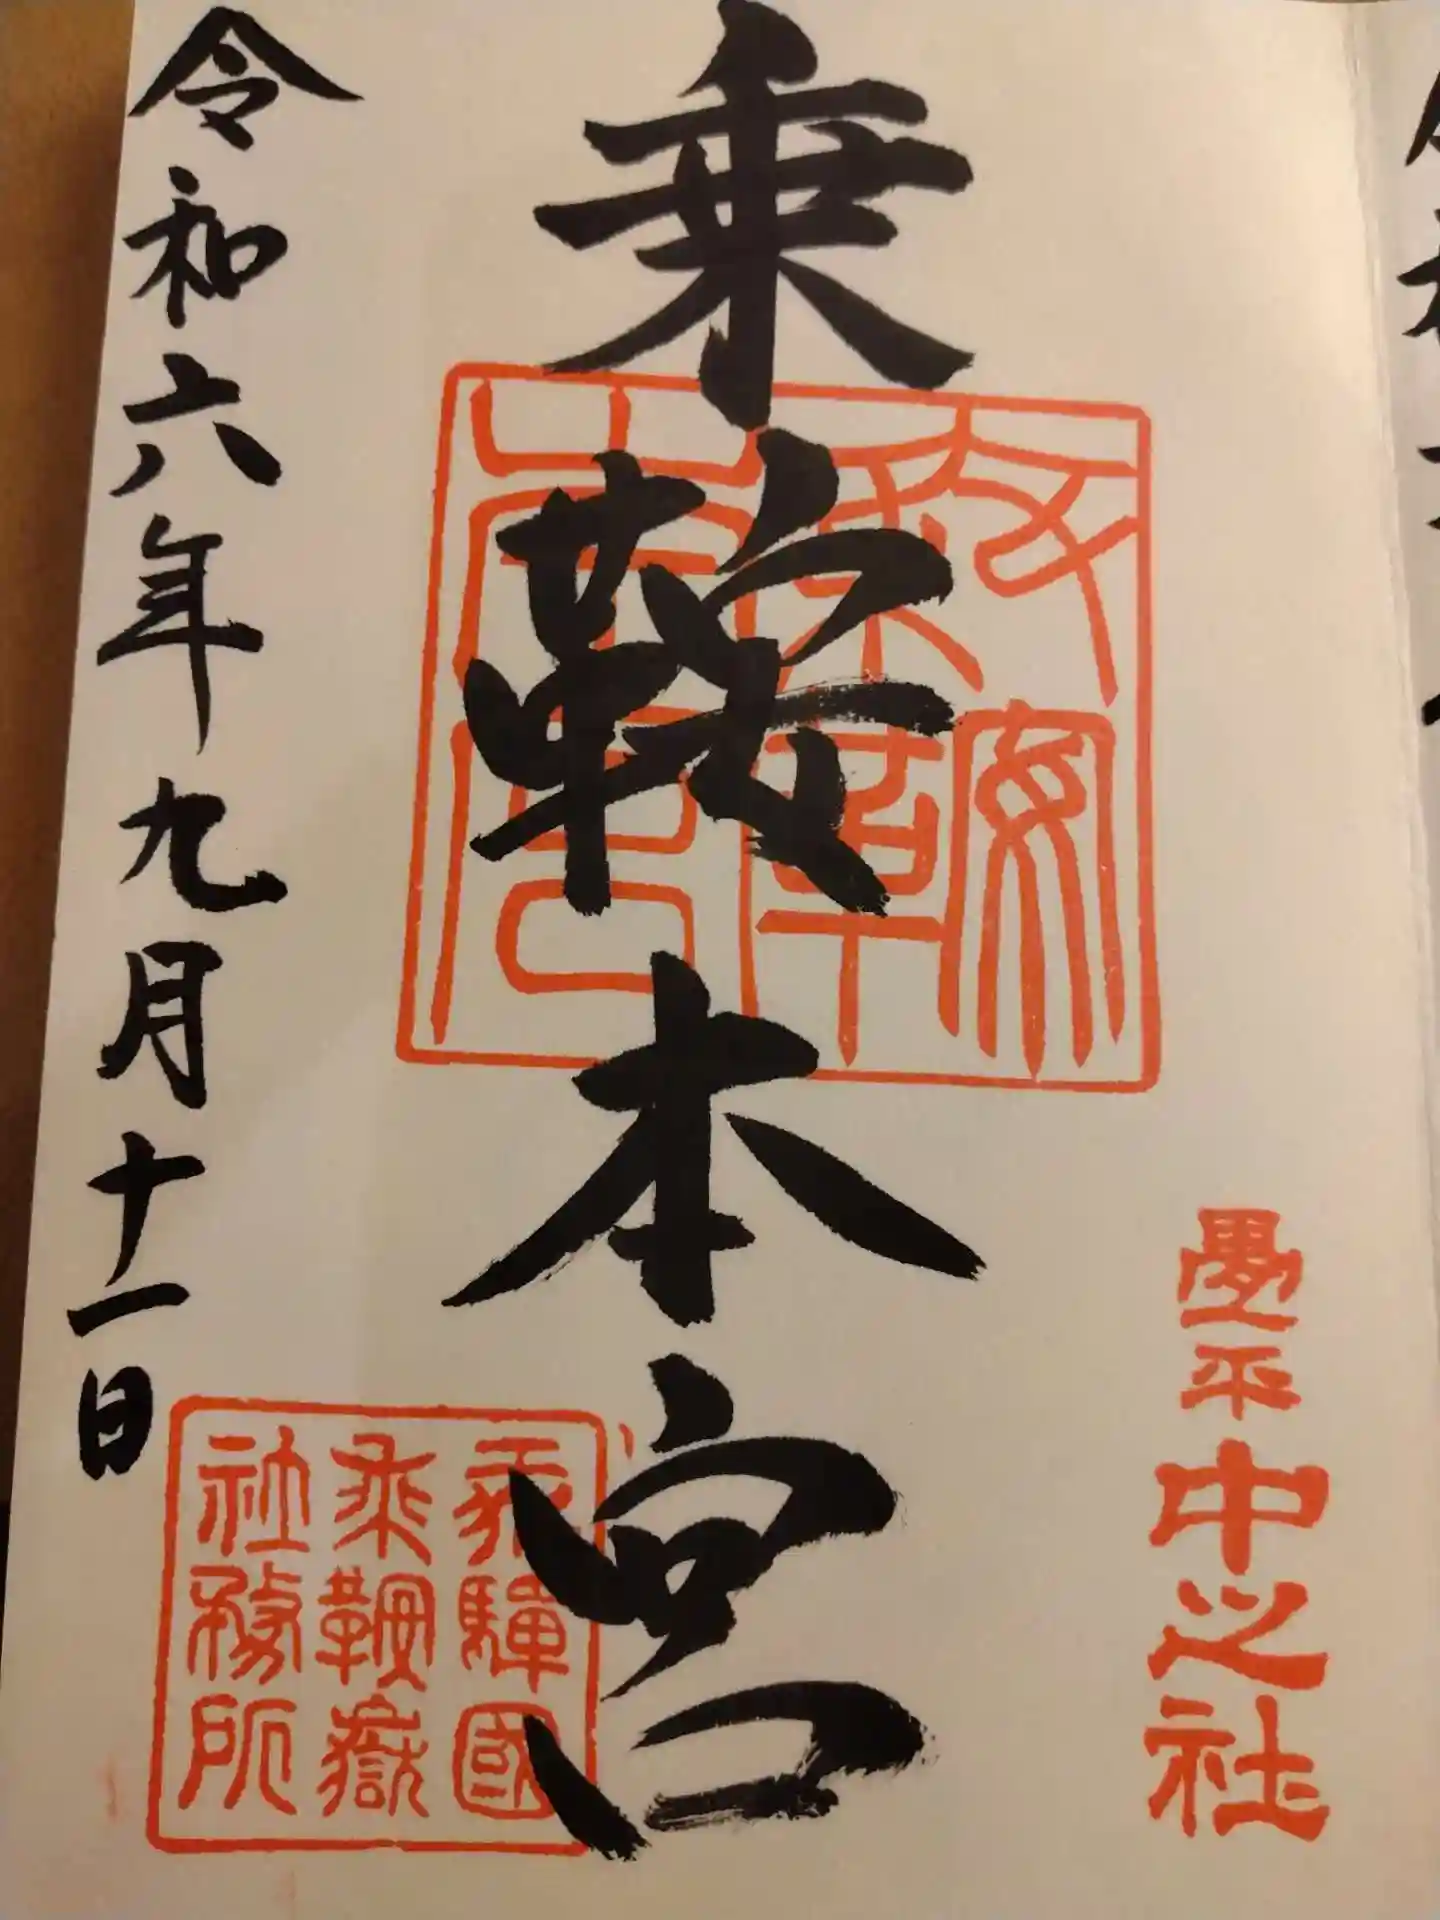 乗鞍本宮
疊平
中之社
令和六年九月十一日
乗鞍嶽
社務所